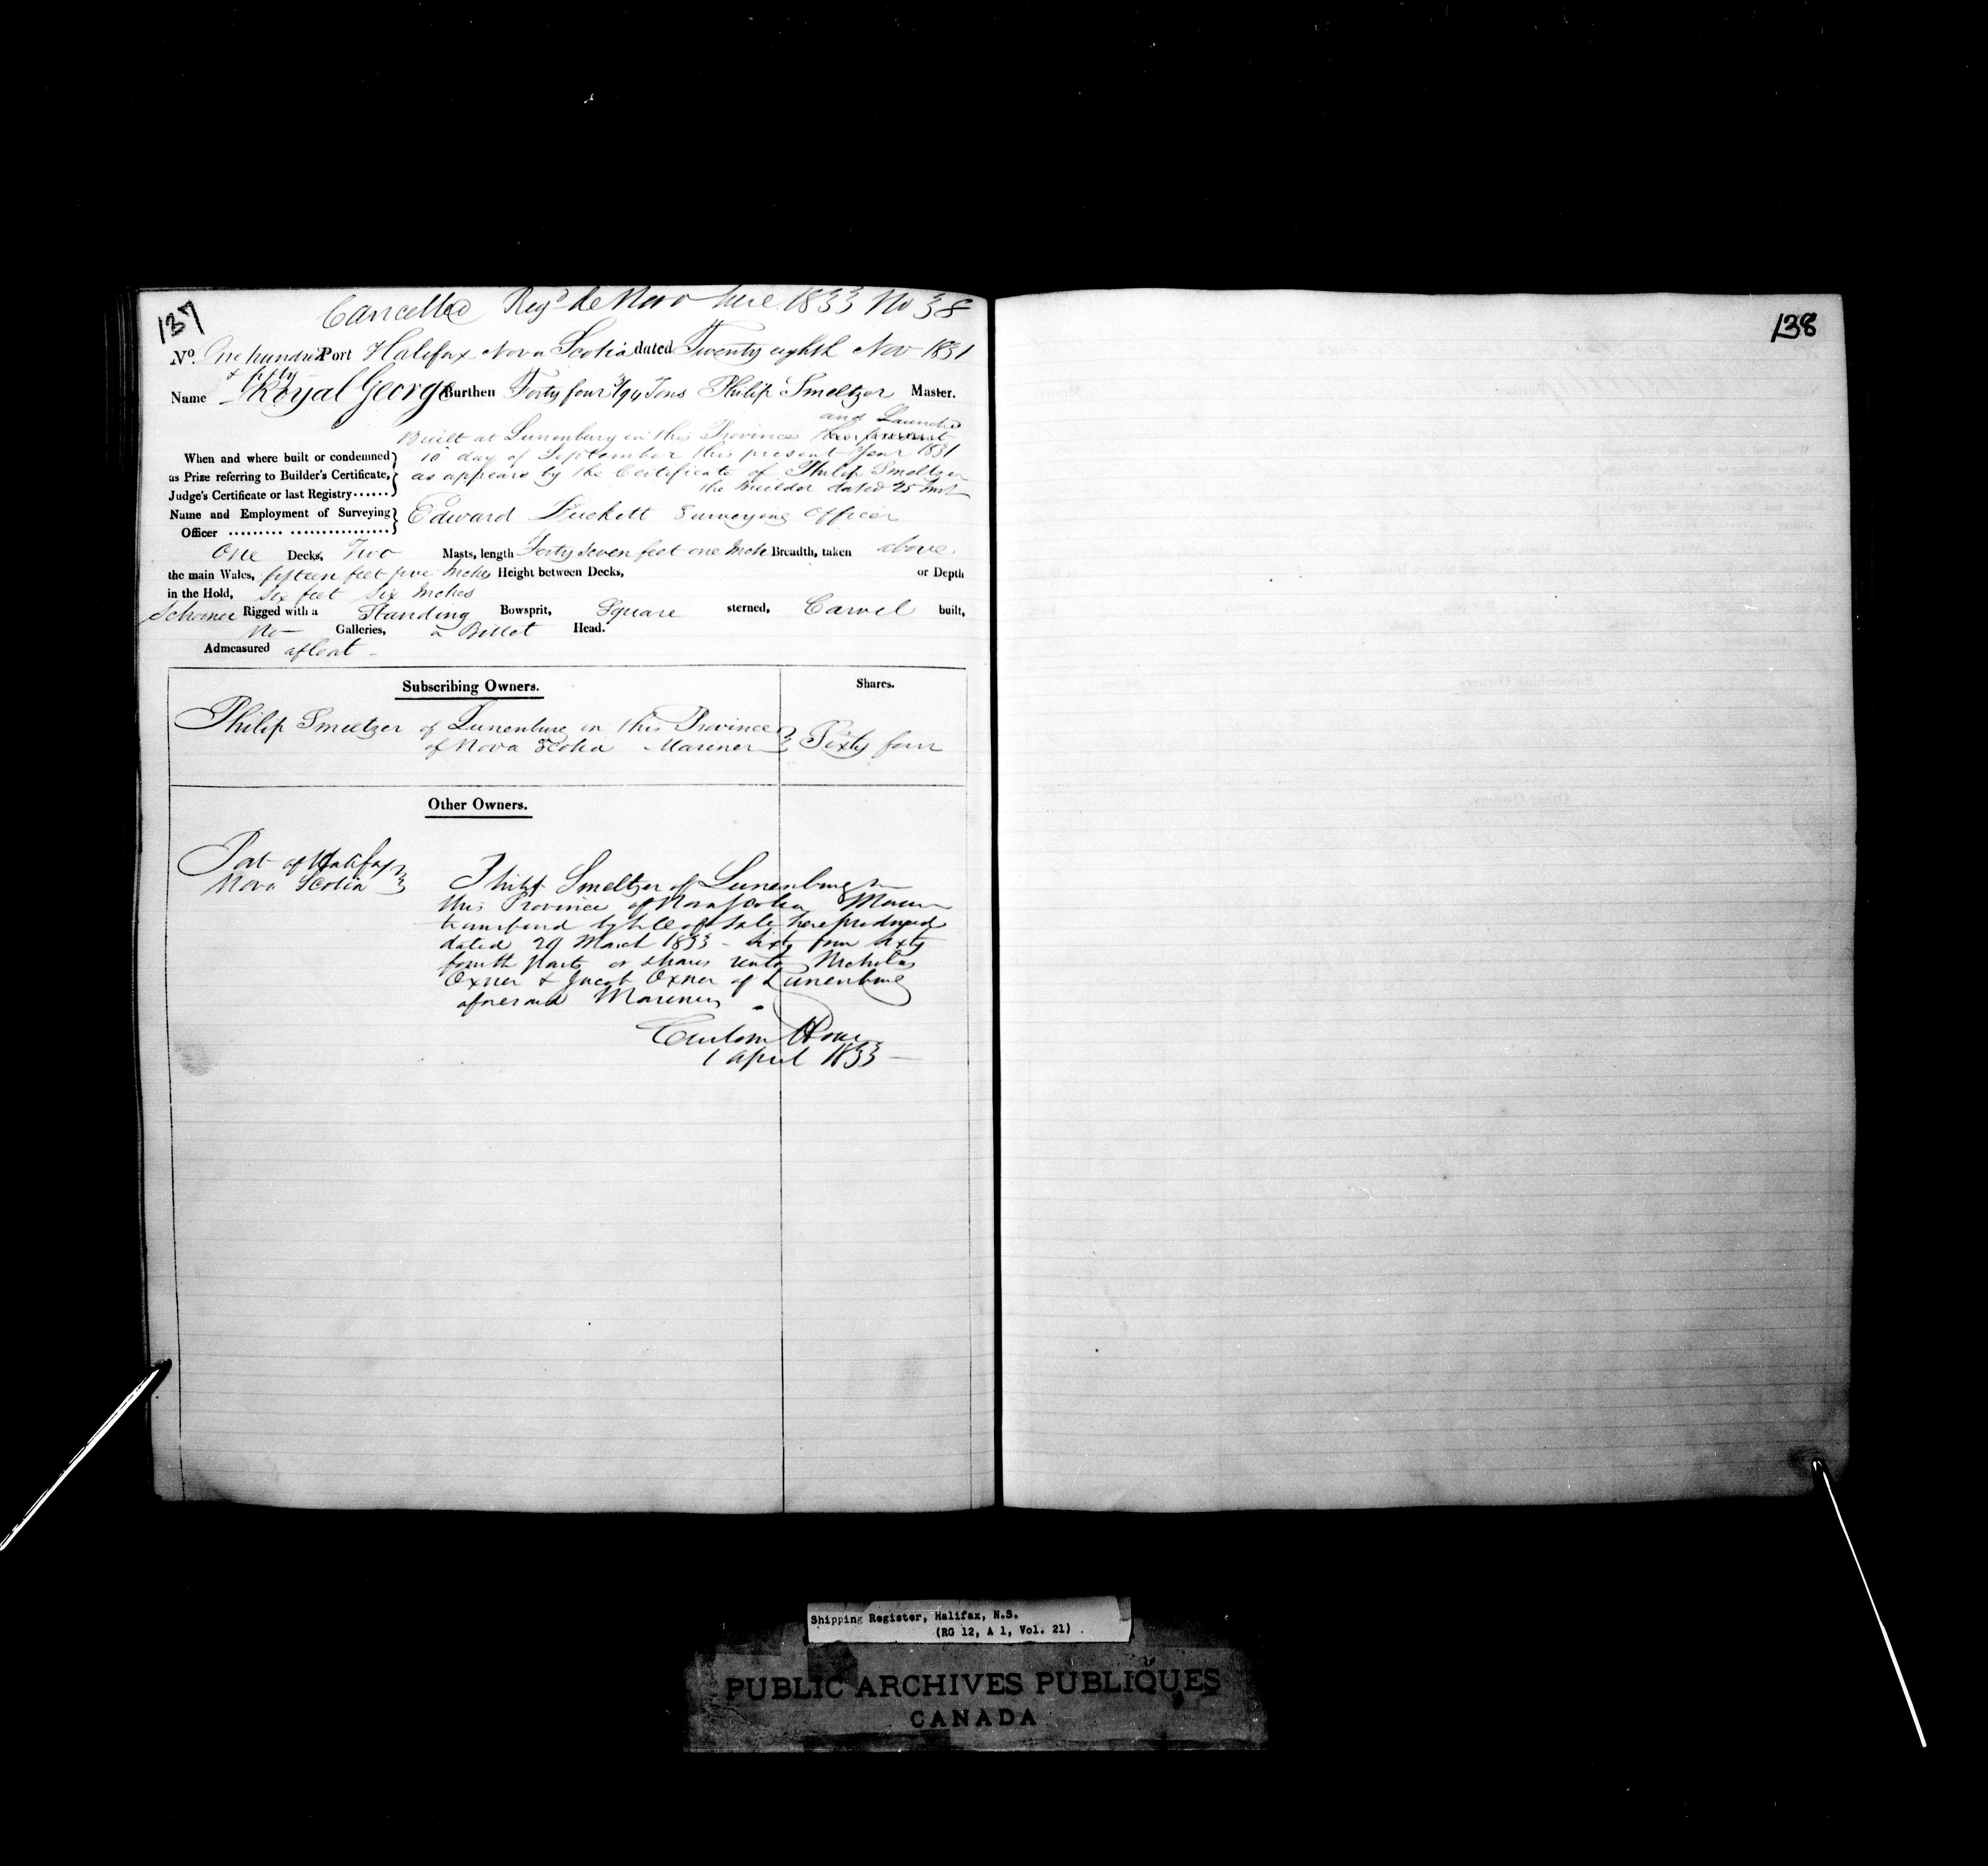 137
Cancelled Regd de Novo here 1833 No 38
No. One hundred & fifty Port Halifax Nova Scotia dated Twenty eighth Nov 1831
Name Royal George Burthen Forty four 3/94 Tons Philip Smeltzer Master.
and Launched
Built at Lunenburg in this Province
When and where built or condemned 10 day of September this present Year 1831
as Prize referring to Builder's Certificate, as appears by the Certificate of Philip Smeltzer
Judge's Certificate or last Registry...... the Builder dated 25 Inst
Name and Employment of Surveying Edward Surveying Officer
Officer ......... ...............
One Decks, Two Masts, length Forty Seven feet one Inch Breadth, taken above
the main Wales, fifteen feet five Inches Height between Decks, or Depth
in the Hold, Six feet Six Inches
Schooner Rigged with a Standing Bowsprit, Square sterned, Carvel built,
No Galleries, a Billet Head.
Admeasured afloat
Subscribing Owners. Shares.
Philip Smeltzer of Lunenburg in this Province
of Nova Scotia Mariner Sixty four
Other Owners.
Port of Halifax
Nova Scotia
Philip Smeltzer of Lunenburg in
this Province of Nova Scotia
transferred by bill of Sale here produced
dated 29 March 1833 - Sixty four Sixty
fourth parts or shares unto Nicholas
Oxner & Jacob Oxner of Lunenburg
aforesaid Mariners
Custom House
1 April 1833
138
Shipping Register, Halifax, N.S.
(RG 12, A 1, Vol. 21)
PUBLIC ARCHIVES PUBLIQUES
CANADA